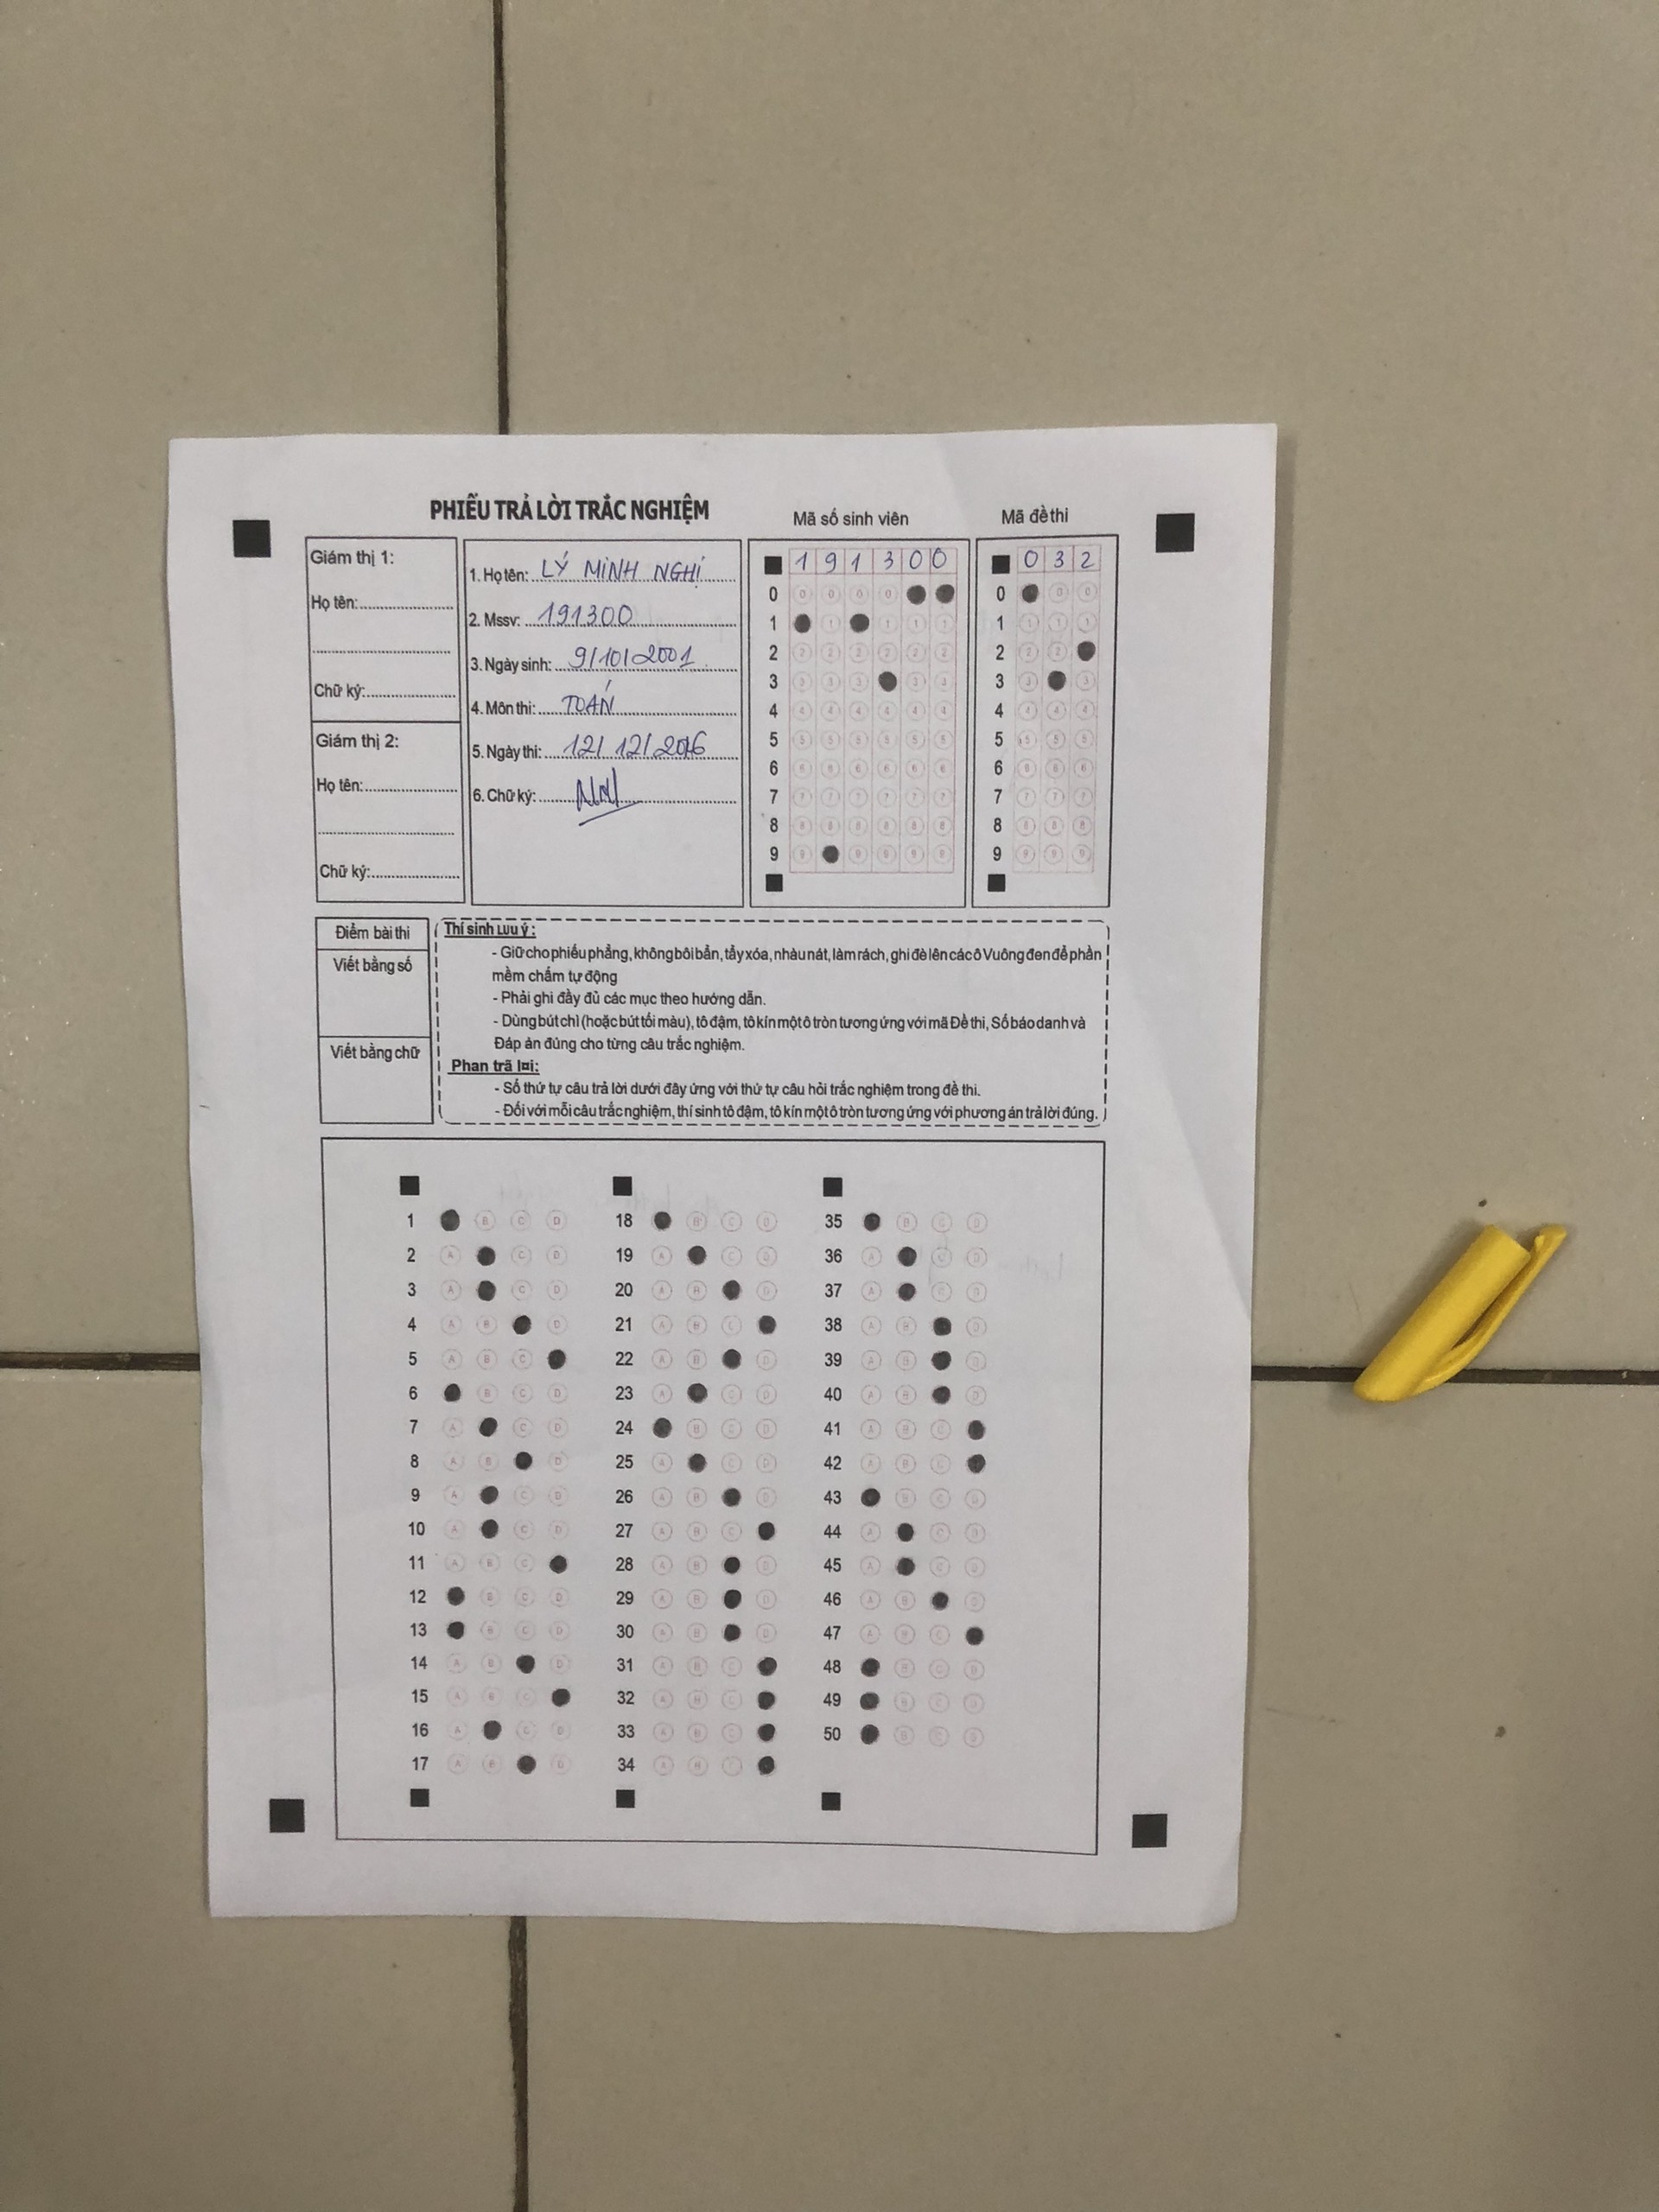 PHIẾU TRẢ LỜI TRẮC NGHIỆM
Mã số sinh viên
Mã đề thi
Giám thị 1:
Họ tên:
Chữ ký:
Giám thị 2:
Họ tên:
Chữ ký:
1. Họ tên: LÝ MINH NGHỊ
2. Mssv: 191300
3. Ngày sinh: 9/10/2001
4. Môn thi: TOÁN
5. Ngày thi: 12/12/2016
6. Chữ ký:
1 9 1 3 0 0
0 3 2
0
1
2
3
4
5
6
7
8
9
0
1
2
3
4
5
6
7
8
9
Điểm bài thi
Viết bằng số
Viết bằng chữ
Thí sinh Lưu ý:
- Giữ cho phiếu phẳng, không bôi bẩn, tẩy xóa, nhàu nát, làm rách, ghi đè lên các ô Vuông đen để phần
mềm chấm tự động
- Phải ghi đầy đủ các mục theo hướng dẫn.
- Dùng bút chì (hoặc bút tối màu), tô đậm, tô kín một ô tròn tương ứng với mã Đề thi, Số báo danh và
Đáp àn đúng cho từng câu trắc nghiệm.
Phan trã lời:
- Số thứ tự câu trả lời dưới đây ứng với thứ tự câu hỏi trắc nghiệm trong đề thi.
- Đối với mỗi câu trắc nghiệm, thí sinh tô đậm, tô kín một ô tròn tương ứng với phương án trả lời đúng.
1 B C D
2 A C D
3 A C D
4 A B D
5 A B C
6 B C D
7 A C D
8 A B D
9 A C D
10 A C D
11 A B C
12 B C D
13 B C D
14 A B D
15 A B C
16 A C D
17 A B D
18 B C D
19 A C D
20 A B D
21 A B C
22 A B D
23 A C D
24 B C D
25 A C D
26 A B D
27 A B C
28 A B D
29 A B D
30 A B D
31 A B C
32 A B C
33 A B C
34 A B C
35 B C D
36 A C D
37 A C D
38 A B D
39 A B D
40 A B D
41 A B C
42 A B C
43 B C D
44 A C D
45 A C D
46 A B D
47 A B C
48 B C D
49 B C D
50 B C D